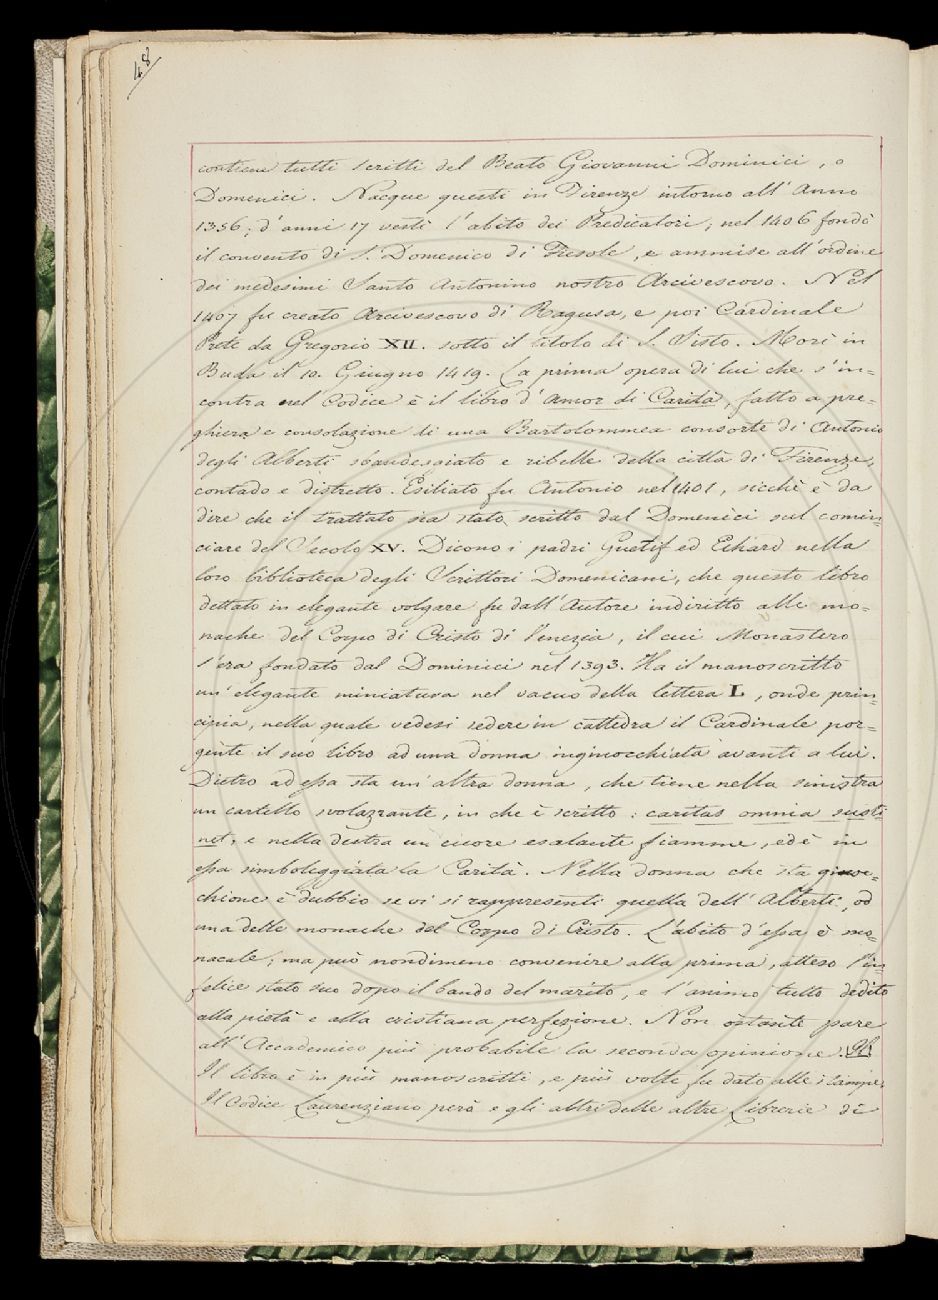 48
contiene tutti scritti del Beato Giovanni Dominici, o
Domenici. Nacque questi in Firenze intorno all'Anno
1356; d'anni 17 vestì l'abito dei Predicatori; nel 1406 fondò
il convento di S. Domenico di Fiesole, e ammise all'ordine
dei medesimi Santo Antonino nostro Arcivescovo. Nel
1407 fu creato Arcivescovo di Ragusa, e poi Cardinale
Prete da Gregorio XII. sotto il titolo di S. Sisto. Morì in
Buda il 10. Giugno 1419. La prima opera di lui che s'in=
contra nel Codice è il libro d'Amor di Carità, fatto a pre=
ghiera e consolazione di una Bartolommea consorte di Antonio
degli Alberti sbandeggiato e ribelle della città di Firenze,
contado e distretto. Esiliato fu Antonio nel 1401, sicchè è da
dire che il trattato sia stato scritto dal Domenici sul comin=
ciare del Secolo XV. Dicono i padri Quetif ed Echard nella
loro biblioteca degli Scrittori Domenicani, che questo libro
dettato in elegante volgare fu dall'Autore indiritto alle mo=
nache del Corpo di Cristo di Venezia, il cui Monastero
s'era fondato dal Dominici nel 1393. Ha il manoscritto
un'elegante miniatura nel vacuo della lettera L, onde prin=
cipia, nella quale vedesi sedere in cattedra il Cardinale por=
gente il suo libro ad una donna inginocchiata avanti a lui.
Dietro ad essa sta un'altra donna, che tiene nella sinistra
un cartello svolazzante, in che è scritto: caritas omnia susti=
net, e nella destra un cuore esalante fiamme, ed è in
essa simboleggiata la Carità. Nella donna che sta ginoc=
chione è dubbio se vi si rappresenti quella dell'Alberti, od
una delle monache del Corpo di Cristo. L'abito d'essa è mo=
nacale; ma può nondimeno convenire alla prima, atteso l'in=
felice stato suo dopo il bando del marito, e l'animo tutto dedito
alla pietà e alla cristiana perfezione. Non ostante pare
all'Accademico più probabile la seconda opinione.
Il libro è in più manoscritti, e più volte fu dato alle stampe.
Il Codice Laurenziano però e gli altri delle altre Librerie di